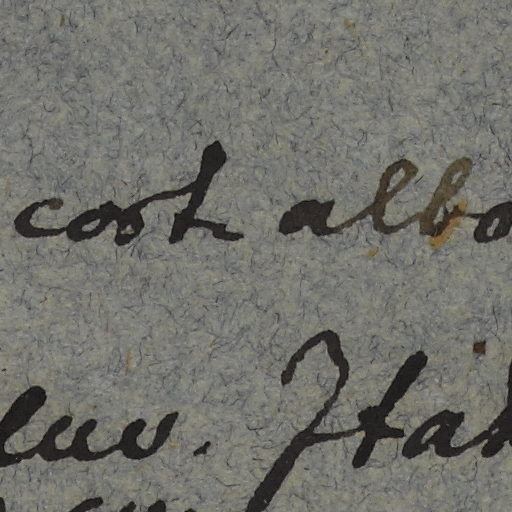 cort albo
luv. Ital